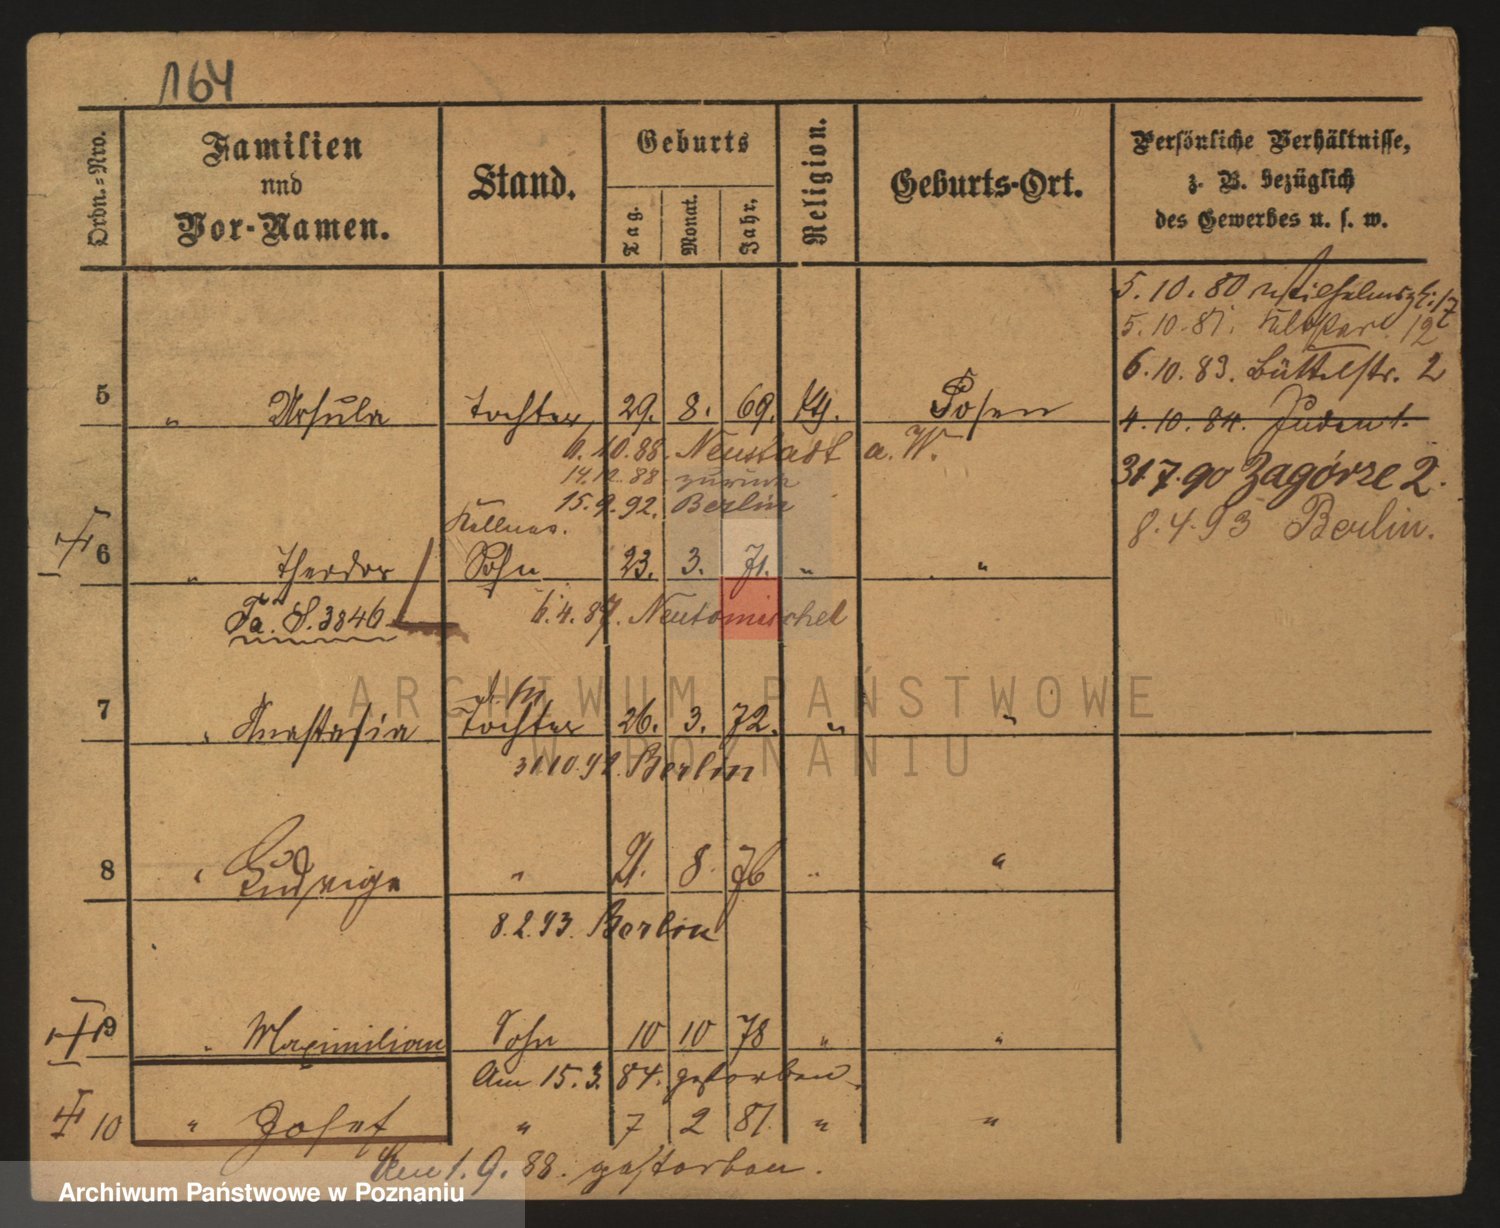 164
Ordn.-Nro.
Familien
nnd
Vor-Namen.
Stand.
Geburts
Tag.
Monat.
Jahr.
Religion.
Geburts-Ort.
Persönliche Verhältnisse,
z. B. bezüglich
des Gewerbes u. s. w.
5.10.80 Wilhelmspl. 17
5.10.81. Kloster 12
6.10.83. Büttelstr. 2
4.10.84. Juden 1.
31.7.90 Zagórze 2.
8.4.93 Berlin.
5 " Ursula Tochter 29. 8. 69. Kth. Posen
6.10.88. Neustadt a. W.
14.12.88 zurück
15.9.92. Berlin
Kellner.
6 " Theodor Sohn 23. 3. 71. " "
Fa. S. 3846
6.4.87. Neutomischel
7 " Anastasia Tochter 26. 3. 72. " "
31.10.91. Berlin
8 " Hedwig " 21. 8. 76 " "
8.2.93. Berlin
9 " Maximilian Sohn 10 10 78 " "
Am 15.3.84. gestorben.
10 " Josef " 7 2 81 " "
Am 1.9.88. gestorben.
ARCHIWUM PAŃSTWOWE
W POZNANIU
Archiwum Państwowe w Poznaniu